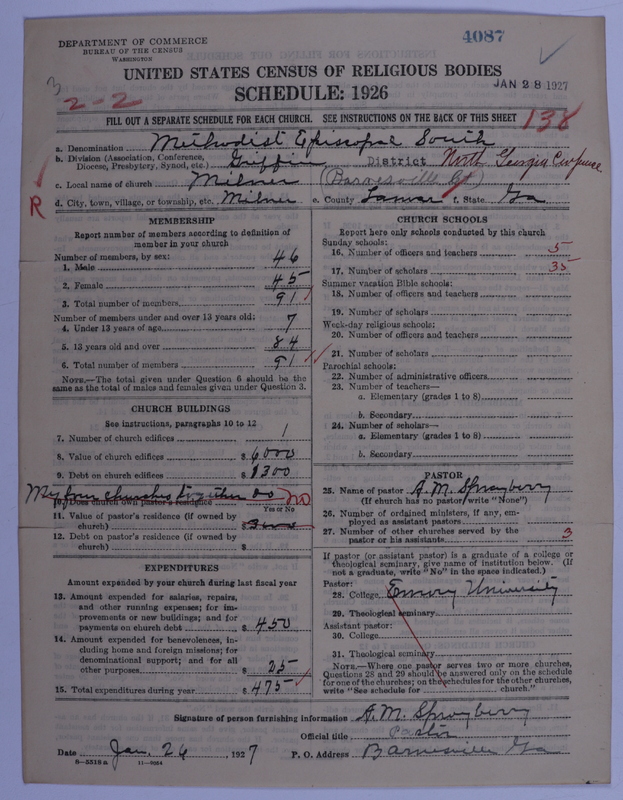 4087
DEPARTMENT OF COMMERCE
BUREAU OF THE CENSUS
WASHINGTON
UNITED STATES CENSUS OF RELIGIOUS BODIES
SCHEDULE: 1926
JAN 28 1927
3
2-2
138
FILL OUT A SEPARATE SCHEDULE FOR EACH CHURCH. SEE INSTRUCTIONS ON THE BACK OF THIS SHEET
a. Denomination Methodist Episcopal South
b. Division (Association, Conference, Diocese, Presbytery, Synod, etc.) Griffin District North Georgia Conference
c. Local name of church Milner (Barnesville Ct)
R
d. City, town, village, or township, etc. Milner e. County Lamar f. State Ga
MEMBERSHIP
Report number of members according to definition of
member in your church
Number of members, by sex:
1. Male 46
2. Female 45
3. Total number of members 91
Number of members under and over 13 years old:
4. Under 13 years of age 7
5. 13 years old and over 84
6. Total number of members 91
NOTE.—The total given under Question 6 should be the
same as the total of males and females given under Question 3.
CHURCH BUILDINGS
See instructions, paragraphs 10 to 12
7. Number of church edifices 1
8. Value of church edifices $ 6000
9. Debt on church edifices $ 1300
My four churches together do no
10. Does church own pastor's residence
Yes or No
11. Value of pastor's residence (if owned by
church) $ 3000
12. Debt on pastor's residence (if owned by
church) $
EXPENDITURES
Amount expended by your church during last fiscal year
13. Amount expended for salaries, repairs,
and other running expenses; for im-
provements or new buildings; and for
payments on church debt $ 450
14. Amount expended for benevolences, in-
cluding home and foreign missions; for
denominational support; and for all
other purposes $ 25
15. Total expenditures during year $ 475
CHURCH SCHOOLS
Report here only schools conducted by this church
Sunday schools:
16. Number of officers and teachers 5
17. Number of scholars 35
Summer vacation Bible schools:
18. Number of officers and teachers
19. Number of scholars
Week-day religious schools:
20. Number of officers and teachers
21. Number of scholars
Parochial schools:
22. Number of administrative officers
23. Number of teachers—
a. Elementary (grades 1 to 8)
b. Secondary
24. Number of scholars—
a. Elementary (grades 1 to 8)
b. Secondary
PASTOR
25. Name of pastor A. M. Sprayberry
(If church has no pastor, write "None")
26. Number of ordained ministers, if any, em-
ployed as assistant pastors
27. Number of other churches served by the
pastor or his assistants 3
If pastor (or assistant pastor) is a graduate of a college or
theological seminary, give name of institution below. (If
not a graduate, write "No" in the space indicated.)
Pastor:
28. College Emory University
29. Theological seminary
Assistant pastor:
30. College
31. Theological seminary
NOTE.—Where one pastor serves two or more churches,
Questions 28 and 29 should be answered only on the schedule
for one of the churches; on the schedules for the other churches,
write "See schedule for church."
Signature of person furnishing information A. M. Sprayberry
Official title Pastor
Date Jan. 26, 1927 P. O. Address Barnesville Ga
8—5518a 11—9084